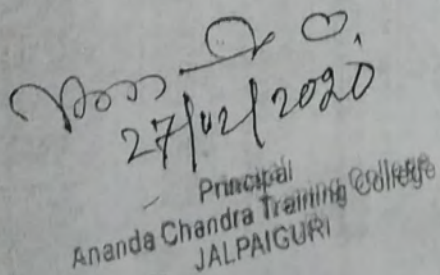 27/02/2020
Principal
Ananda Chandra Training College
JALPAIGURI